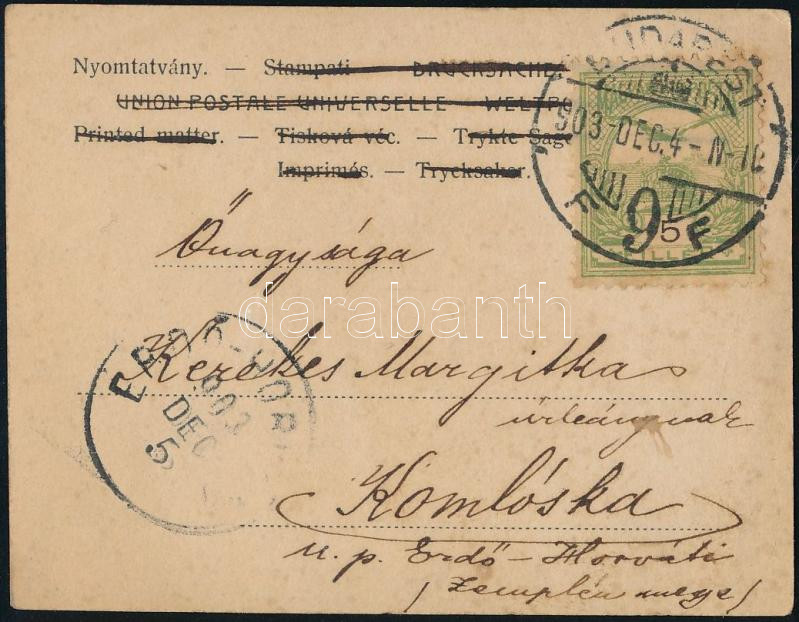 Nyomtatvány. — Stampati — DRUCKSACHE
UNION POSTALE UNIVERSELLE WELTPO
Printed matter. — Tisková véc. — Trykte Sag
Imprimés. — Trycksaker.
BUDAPEST
903-DEC.4-N-10
9 F
5
FILLÉR
Őnagysága
darabanth
Kerekes Margitka
úrleánynak
ERDŐ-HOR
903
DEC
5
Komlóska
u. p. Erdő-Horváti
(Zemplén megye)